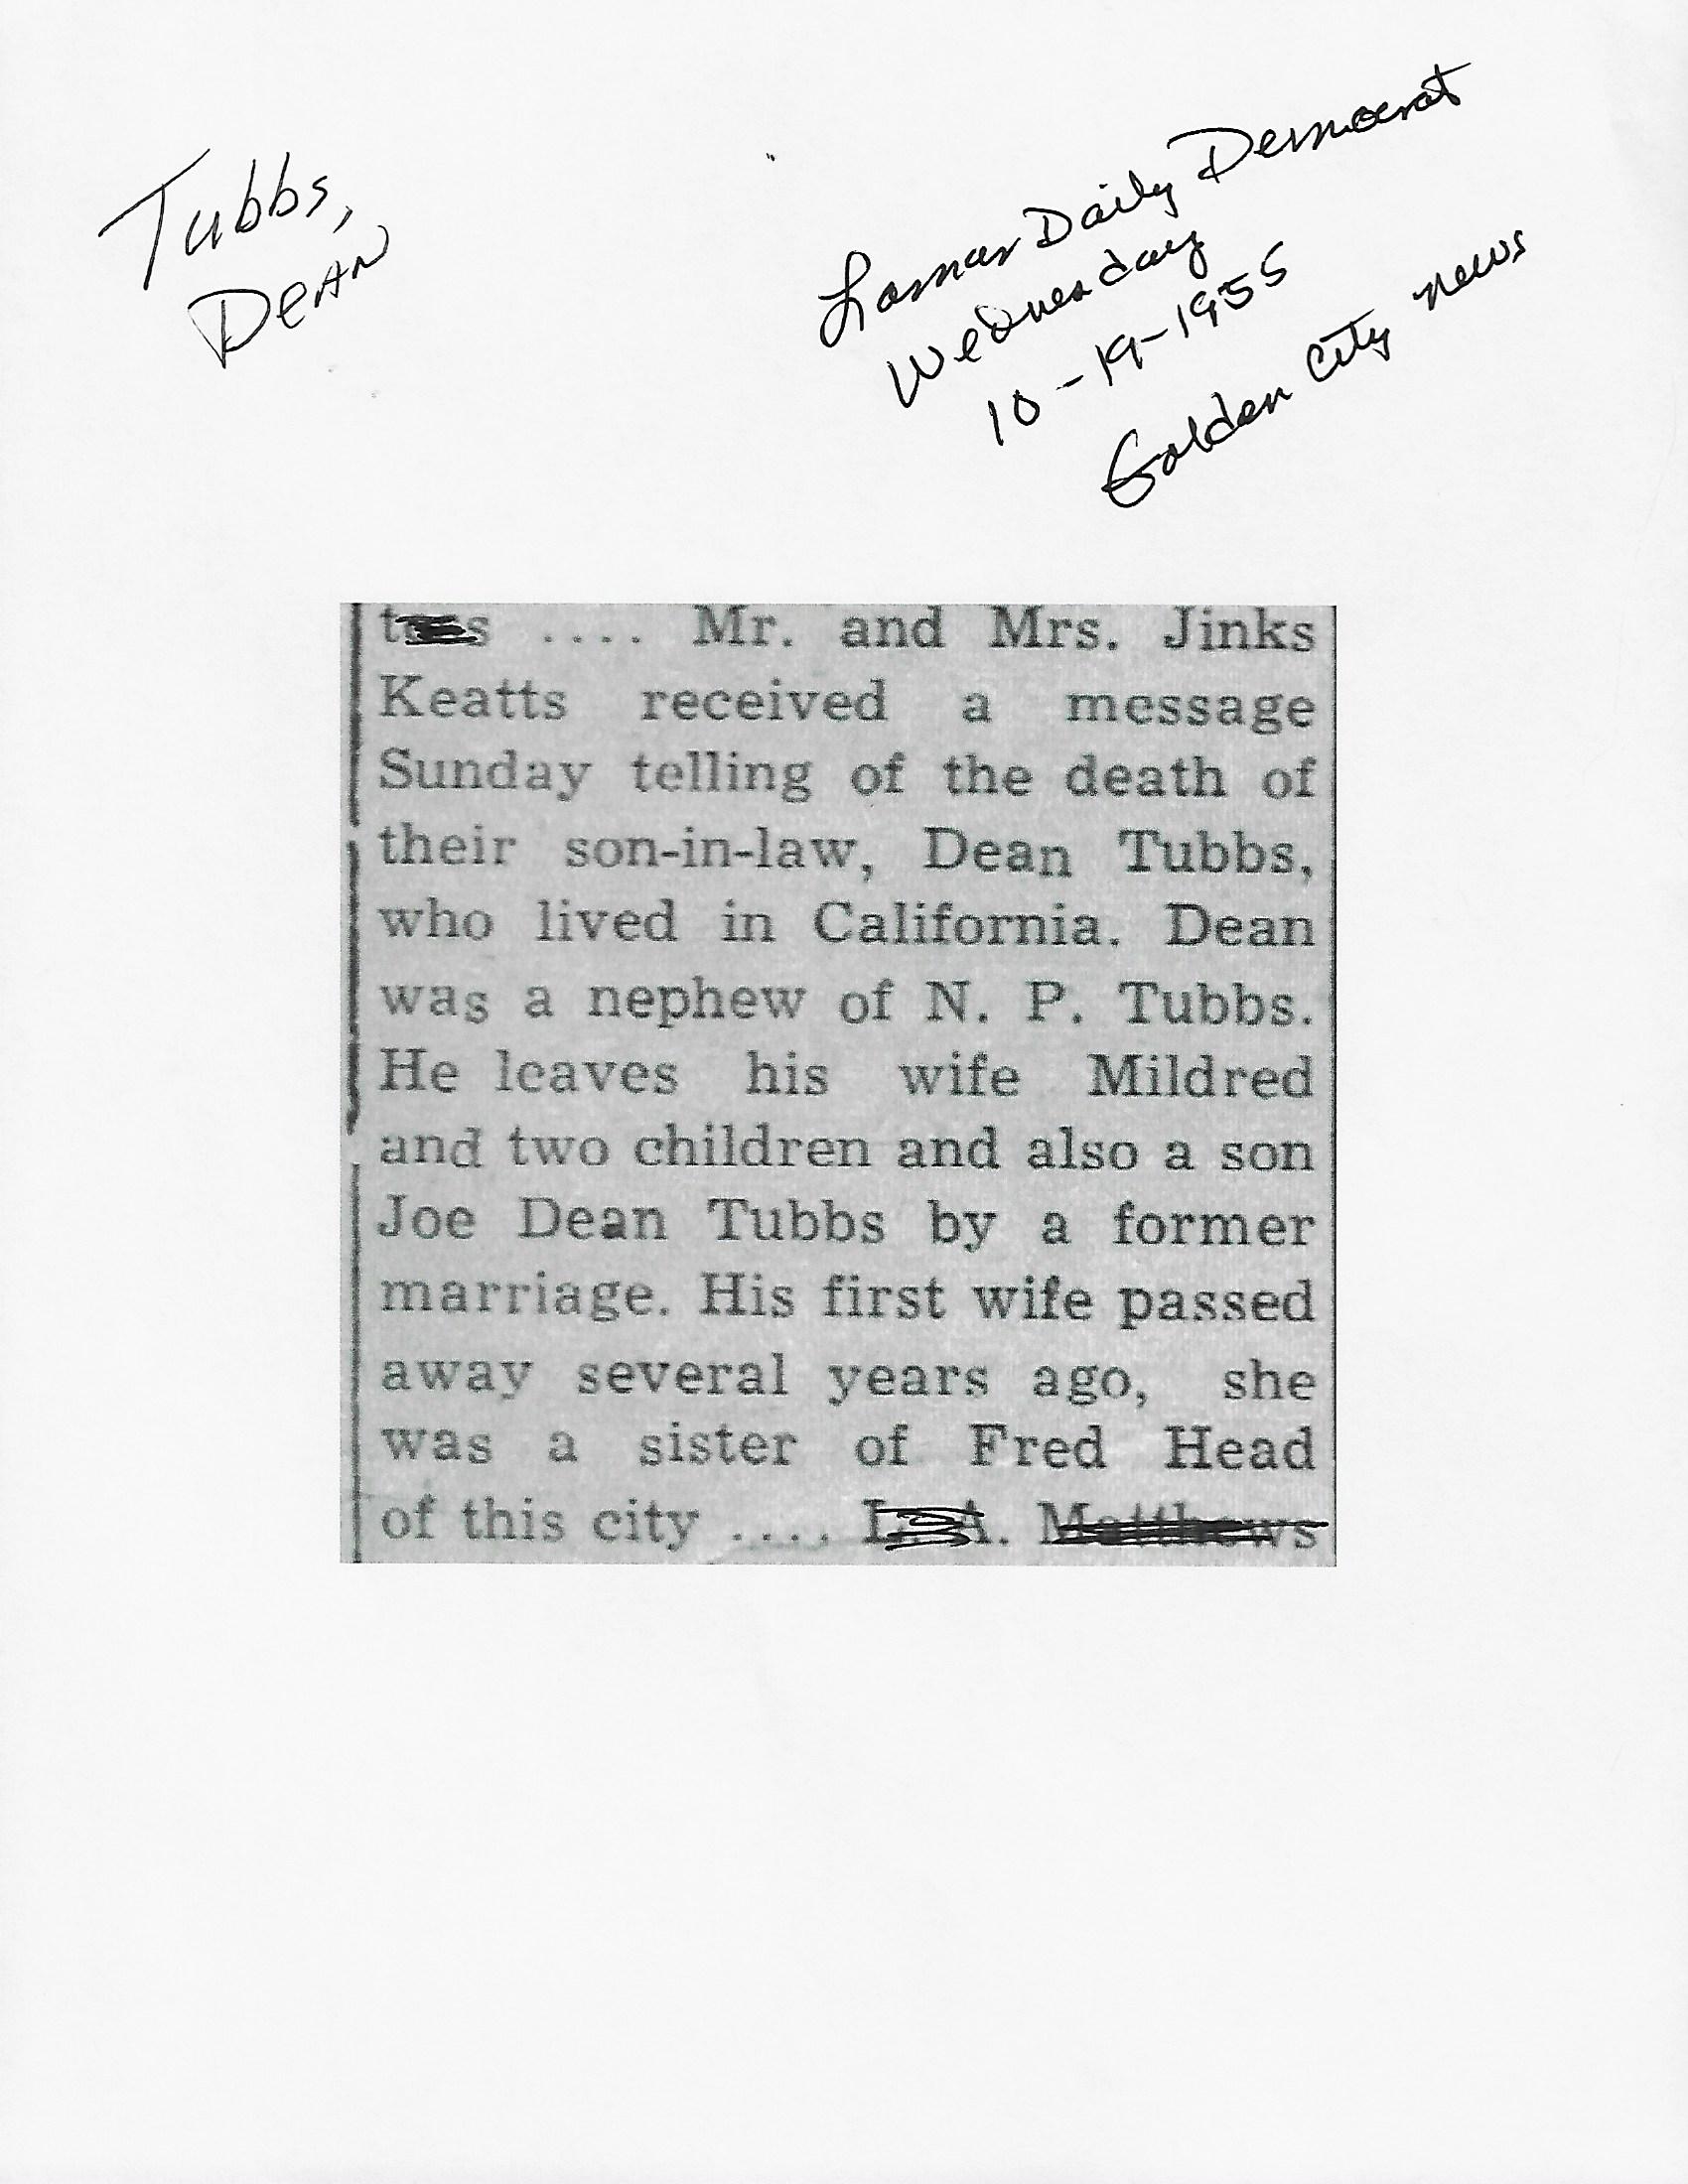 Tubbs,
Dean
Lamar Daily Democrat
Wednesday
10-19-1955
Golden City news
.... Mr. and Mrs. Jinks
Keatts received a message
Sunday telling of the death of
their son-in-law, Dean Tubbs,
who lived in California. Dean
was a nephew of N. P. Tubbs.
He leaves his wife Mildred
and two children and also a son
Joe Dean Tubbs by a former
marriage. His first wife passed
away several years ago, she
was a sister of Fred Head
of this city .... L. A. Matthews